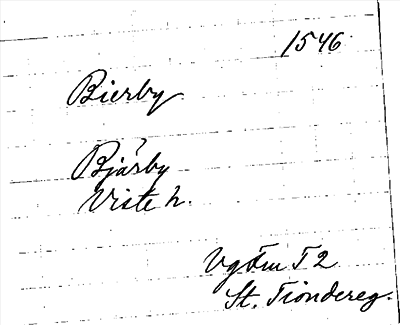 1546
Bierby
Bjärby
Viste h.
Vg Fru T 2
St. Tiondereg.